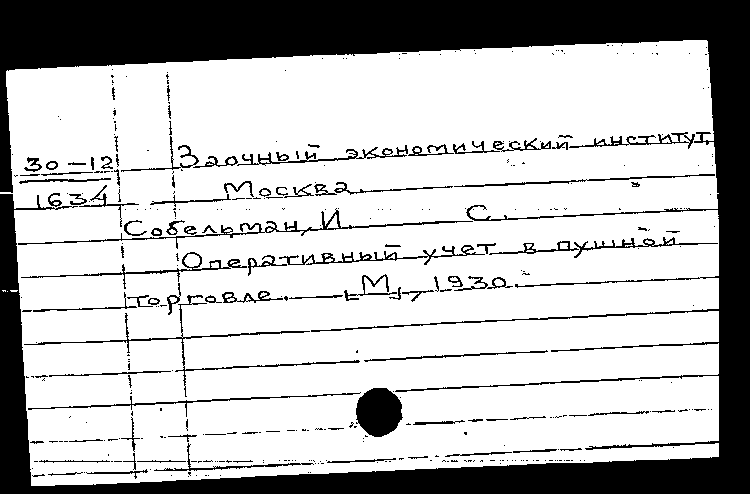 30-12 Заочный экономический институт,
1634 Москва.
Собельман, И. С.
Оперативный учет в пушной
торговле. [М], 1930.